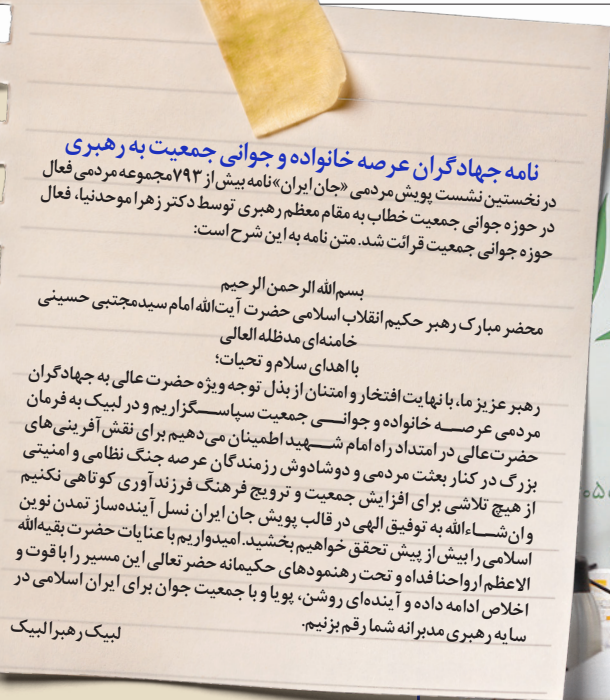 نامه جهادگران عرصه خانواده و جوانی جمعیت به رهبری
در نخستین نشست پویش مردمی «جان ایران» نامه بیش از ۷۹۳ مجموعه مردمی فعال
در حوزه جوانی جمعیت خطاب به مقام معظم رهبری توسط دکتر زهرا موحدنیا، فعال
حوزه جوانی جمعیت قرائت شد. متن نامه به این شرح است:
بسم‌الله الرحمن الرحیم
محضر مبارک رهبر حکیم انقلاب اسلامی حضرت آیت‌الله امام سیدمجتبی حسینی
خامنه‌ای مدظله العالی
با اهدای سلام و تحیات؛
رهبر عزیز ما، با نهایت افتخار و امتنان از بذل توجه ویژه حضرت عالی به جهادگران
مردمی عرصه خانواده و جوانی جمعیت سپاسگزاریم و در لبیک به فرمان
حضرت‌عالی در امتداد راه امام شهید اطمینان می‌دهیم برای نقش‌آفرینی‌های
بزرگ در کنار بعثت مردمی و دوشادوش رزمندگان عرصه جنگ نظامی و امنیتی
از هیچ تلاشی برای افزایش جمعیت و ترویج فرهنگ فرزندآوری کوتاهی نکنیم
و ان‌شاءالله به توفیق الهی در قالب پویش جان ایران نسل آینده‌ساز تمدن نوین
اسلامی را بیش از پیش تحقق خواهیم بخشید. امیدواریم با عنایات حضرت بقیه‌الله
الاعظم ارواحنا فداه و تحت رهنمودهای حکیمانه حضرتعالی این مسیر را با قوت و
اخلاص ادامه داده و آینده‌ای روشن، پویا و با جمعیت جوان برای ایران اسلامی در
سایه رهبری مدبرانه شما رقم بزنیم.
لبیک رهبرا لبیک